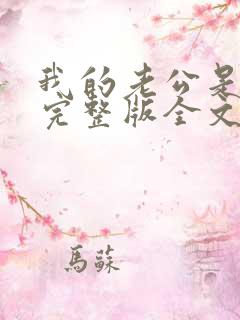 我的老公是
完整版全文
馬蘇